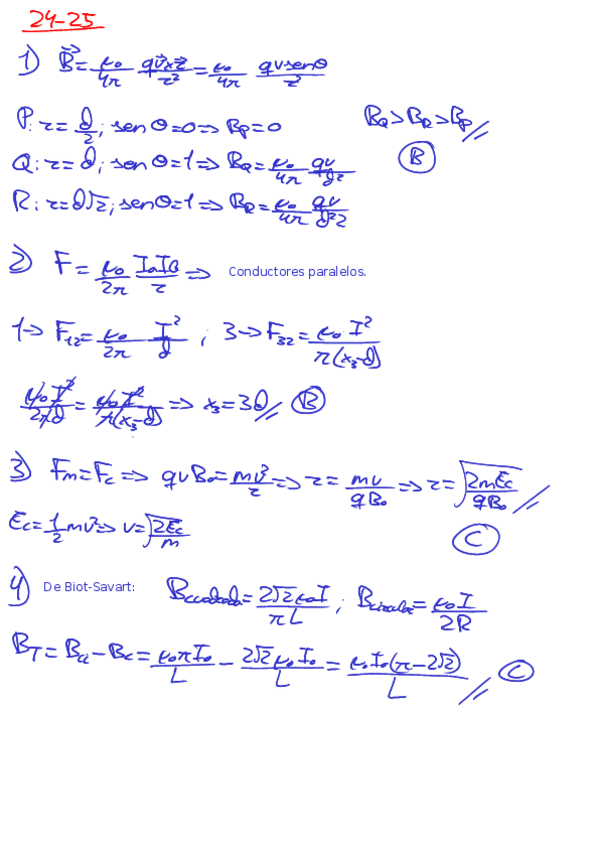 24-25
1) B⃗ = μ₀/4π qv⃗×r⃗/r² = μ₀/4π qv senθ/r²
P: r = d/2; sen θ = 0 => Bp = 0
BQ > BR > Bp //
(B)
Q: r = d; sen θ = 1 => BQ = μ₀/4π qv/d²
R: r = d√2; sen θ = 1 => BR = μ₀/4π qv/d²2
2) F = μ₀/2π IaIb/r => Conductores paralelos.
1 -> F₁₂ = μ₀/2π I²/d ; 3 -> F₃₂ = μ₀ I²/π(x₃-d)
μ₀ I²/2πd = μ₀ I²/π(x₃-d) => x₃ = 3d // (B)
3) Fm = Fc => qvB₀ = mv²/r => r = mv/qB₀ => r = √2mEc/qB₀ //
Ec = 1/2 mv² => v = √2Ec/m
(C)
4) De Biot-Savart: Bcuadrada = 2√2 μ₀I/πL ; Bcircular = μ₀I/2R
BT = Bci - Bc = μ₀πI₀/L - 2√2 μ₀ I₀/L = μ₀I₀(π-2√2)/L // (C)